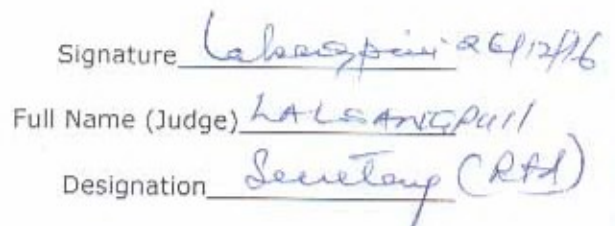 Signature Lalsangpuii 26/12/16
Full Name (Judge) LALSANGPUII
Designation Secretary (Rtd)